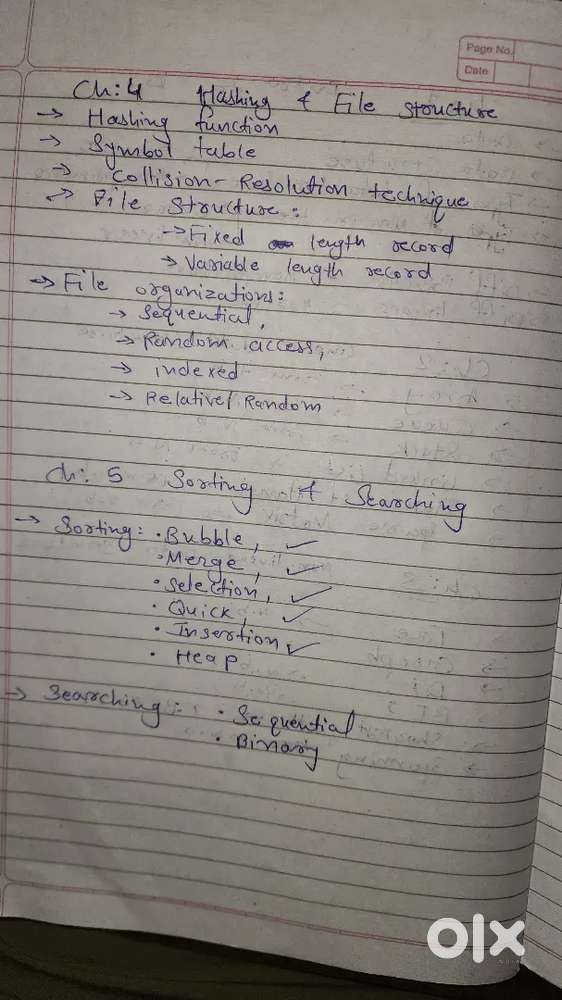 Page No.
Date
Ch:4 Hashing & File structure
→ Hashing function
→ Symbol table
→ Collision-Resolution technique
→ File structure:
→ Fixed length record
→ Variable length record
→ File organizations:
→ Sequential,
→ Random access,
→ indexed
→ Relative/Random
Ch: 5 Sorting & Searching
→ Sorting: • Bubble, ✓
• Merge, ✓
• Selection, ✓
• Quick, ✓
• Insertion ✓
• Heap
→ Searching: • Sequential
• Binary
olx